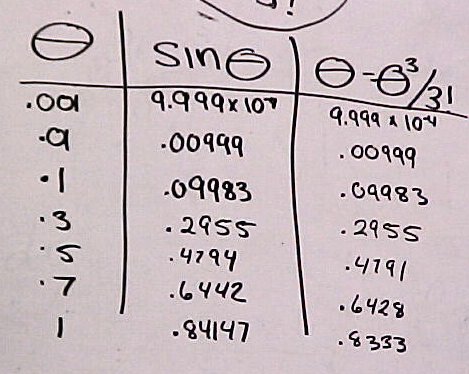 θ sinθ θ-θ³/3!
.001 9.999x10⁻⁴ 9.999x10⁻⁴
.01 .00999 .00999
.1 .09983 .09983
.3 .2955 .2955
.5 .4794 .4791
.7 .6442 .6428
1 .84147 .8333